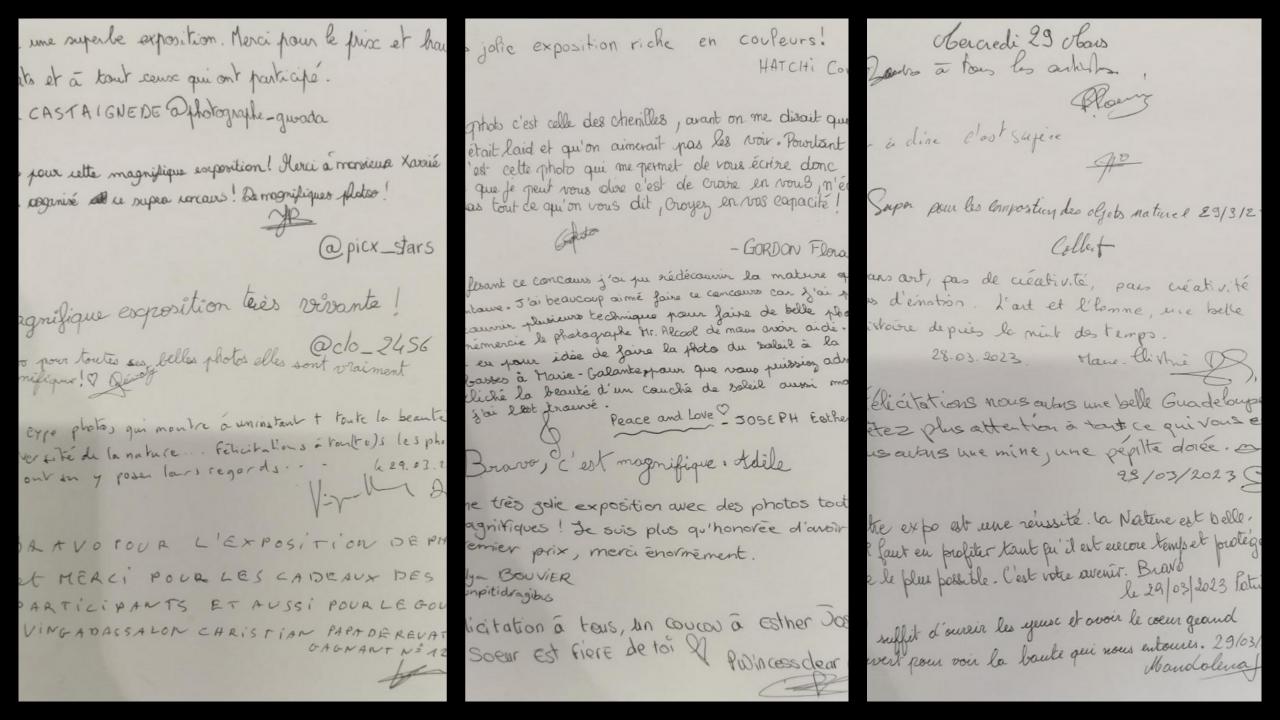 une superbe exposition. Merci pour le prix et
et à tout ceux qui ont participé.
CASTAIGNEDE @photographe_gwada
pour cette magnifique exposition! Merci à monsieur Xavié
organisé ce supra concours! De magnifiques photos!
@picx_stars
agnifique exposition très vivante !
@clo_2456
pour toutes ses belles photos elles sont vraiment
nifique!♡
expo photos, qui montre à un instant + toute la beauté
ersité de la nature... Félicitations à tou(te)s les pho
ont su y poser leurs regards...
le 29.03.2
BRAVO POUR L'EXPOSITION DE PH
et MERCI POUR LES CADEAUX DES
PARTICIPANTS ET AUSSI POUR LE GOU
VINGADASSALON CHRISTIAN PAPA DE RENAT
GAGNANT N° 12
jolie exposition riche en couleurs!
HATCHI Co
photo c'est celle des chenilles, avant on me disait que
était laid et qu'on aimerait pas les voir. Pourtant
'est cette photo qui me permet de vous écrire donc
que je peut vous dire c'est de croire en vous, n'é
as tout ce qu'on vous dit, Croyez en vos capacité !
- GORDON Flora
fesant ce concours j'ai pu rédécouvrir la nature
J'ai beaucoup aimé faire ce concours car j'ai p
ouvrir plusieurs technique pour faire de belle pho
remercie le photographe Mr. Alcool de nous avoir aidé.
eu pour idée de faire la photo du soleil à la
basses à Marie-Galante, pour que vous puissiez adm
cliché la beauté d'un couché de soleil aussi ma
j'ai trouvé.
Peace and Love ♡ - JOSEPH Esther
Bravo, c'est magnifique. Adèle
ne très jolie exposition avec des photos tout
agnifiques ! Je suis plus qu'honorée d'avoir
remier prix, merci énormément.
BOUVIER
onpitidragibus
licitation à tous, un coucou à Esther Jos
Soeur est fière de toi ♡
Pwincessclear
Mercredi 29 Mars
Bravo à tous les artistes
à dire c'est super
Super pour les composition des objets naturel 29/3/2
Colbert
ans art, pas de créativité, pas créativité
s d'émotion. L'art et l'homme, une belle
istoire depuis la nuit des temps.
28.03.2023
élicitations nous avons une belle Guadeloupe
etez plus attention à tout ce qui vous e
us avons une mine, une pépite dorée.
29/03/2023
tre expo est une réussité. La Nature est belle.
faut en profiter tant qu'il est encore temps et protég
e le plus possible. C'est votre avenir. Bravo
le 29/03/2023 Patri
suffit d'ouvrir les yeux et avoir le coeur grand
vert pour voir la bauté qui nous entoures. 29/03/
Mandolena